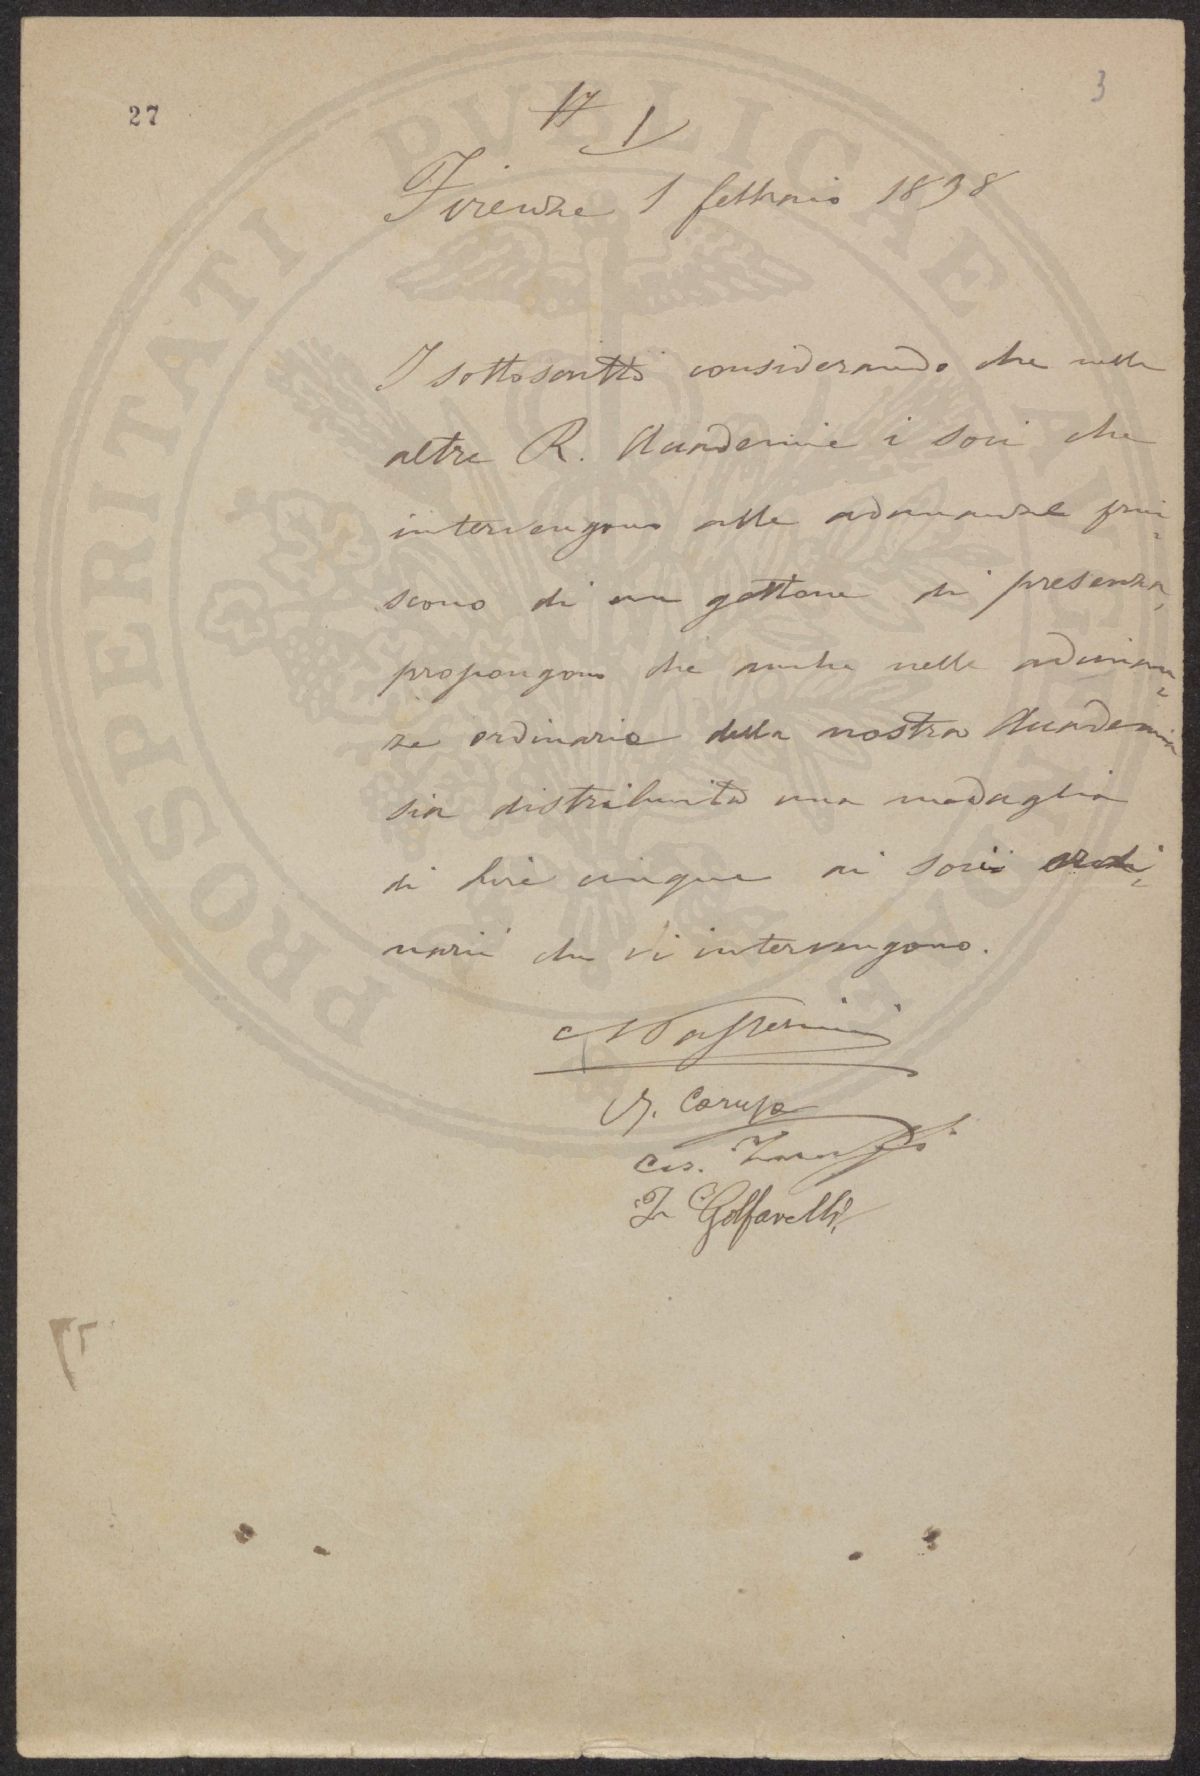 27
17
1
3
Firenze 1 febbraio 1898
I sottoscritti considerando che nelle
altre R. Accademie i soci che
intervengono alle adunanze frui-
scono di un gettone di presenza,
propongono che anche nelle adunan-
ze ordinarie della nostra Accademia
sia distribuita una medaglia
di lire cinque ai socii ordi-
narii che vi intervengono.
N Passerini
G. Caruso
Ces.
I. Golfarelli
PROSPERITATI PVBLICAE AVGENDAE